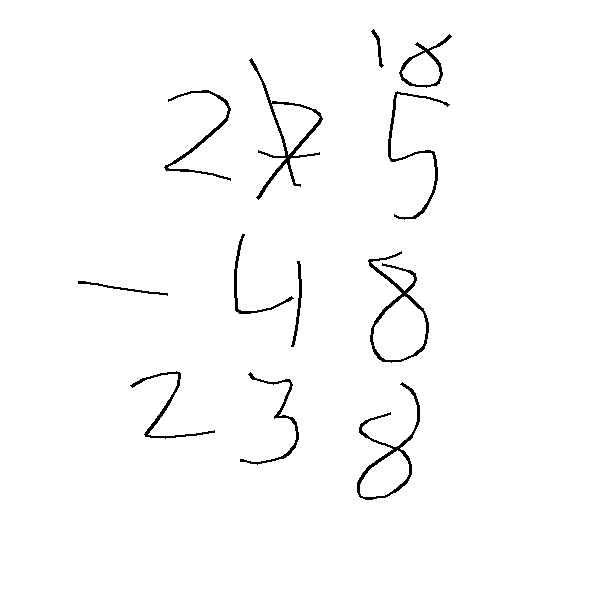 10
275
- 48
238